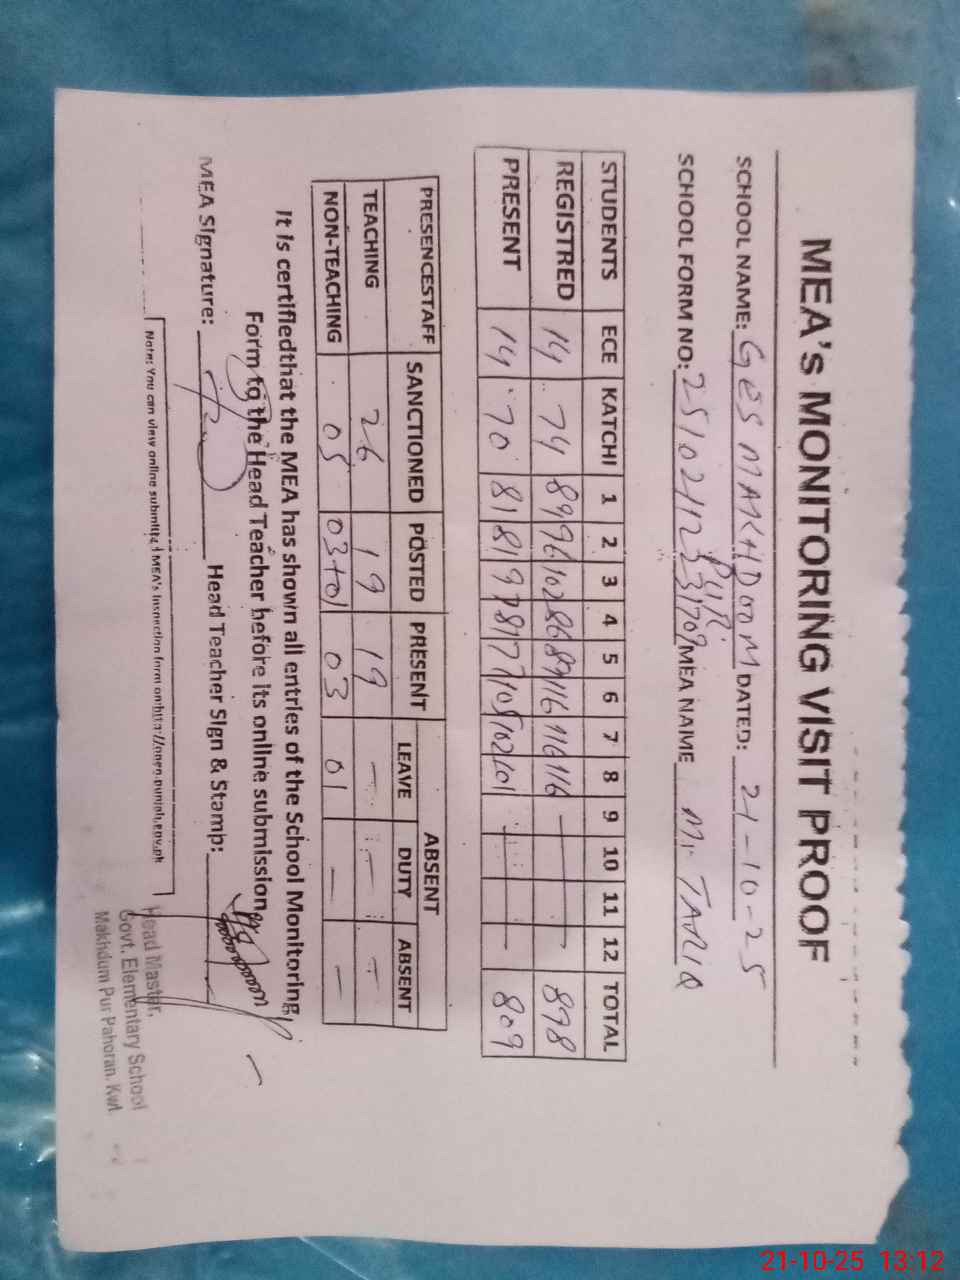 MEA's MONITORING VISIT PROOF
SCHOOL NAME: GES MAKHDOOM DATED: 21-10-25
PUR
SCHOOL FORM NO: MEA NAME Mr TARIQ
STUDENTS ECE KATCHI 1 2 3 4 5 6 7 8 9 10 11 12 TOTAL
REGISTRED 14 74 89 96 102 86 89 116 116 116 — — 898
PRESENT 14 70 81 81 97 81 77 105 102 101 — — 809
PRESENCESTAFF SANCTIONED POSTED PRESENT ABSENT
LEAVE DUTY ABSENT
TEACHING 26 19 19 — — —
NON-TEACHING 05 03+01 03 01 — —
It is certifiedthat the MEA has shown all entries of the School Monitoring
Form to the Head Teacher before its online submission.
MEA Signature: Head Teacher Sign & Stamp:
Head Master,
Govt. Elementary School
Makhdum Pur Pahoran. Kwl
Note: You can view online submitted MEA's Inspection form on
21-10-25 13:12